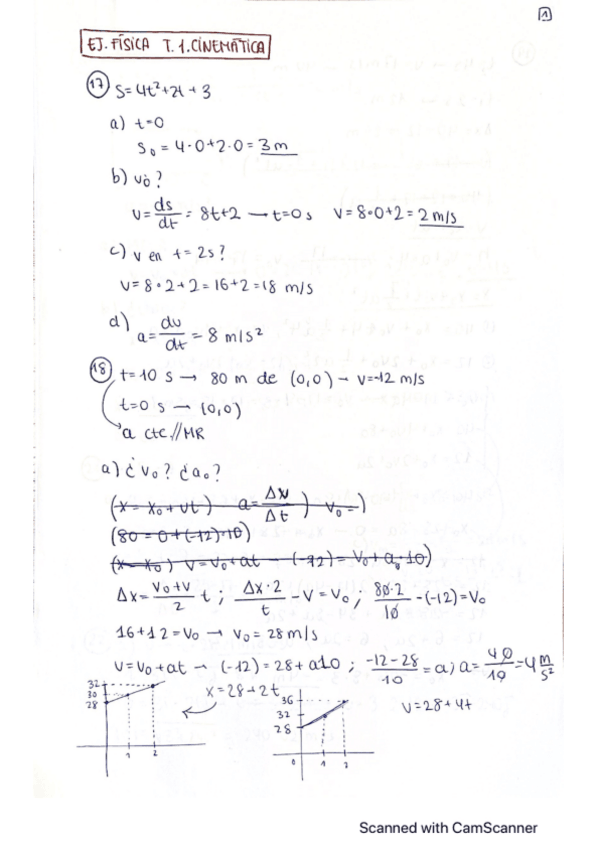 1
EJ. FÍSICA T.1. CINEMÁTICA
17 S=4t²+2t+3
a) t=0
S₀ = 4·0+2·0 = 3 m
b) v₀?
v = ds/dt = 8t+2 → t=0 s v = 8·0+2 = 2 m/s
c) v en t = 2s?
v = 8·2+2 = 16+2 = 18 m/s
d) a = dv/dt = 8 m/s²
18 t=10 s → 80 m de (0,0) – v=-12 m/s
t=0 s → (0,0)
a cte // MR
a) ¿v₀? ¿a₀?
(x = x₀ + vt) a = Δv/Δt ) v₀ =
(80 = 0+(-12)·10)
(x = x₀ ) v = v₀ + at (-12) = v₀ + a₀·10)
Δx = (v₀+v)/2 t ; Δx·2/t – v = v₀ ; 80·2/10 -(-12) = v₀
16+12 = v₀ → v₀ = 28 m/s
v = v₀ + at → (-12) = 28 + a10 ; (-12-28)/10 = a ; a = 40/10 = 4 m/s²
x = 28+2t
v = 28+4t
32
30
28
1 2
36
32
28
0 1 2
Scanned with CamScanner